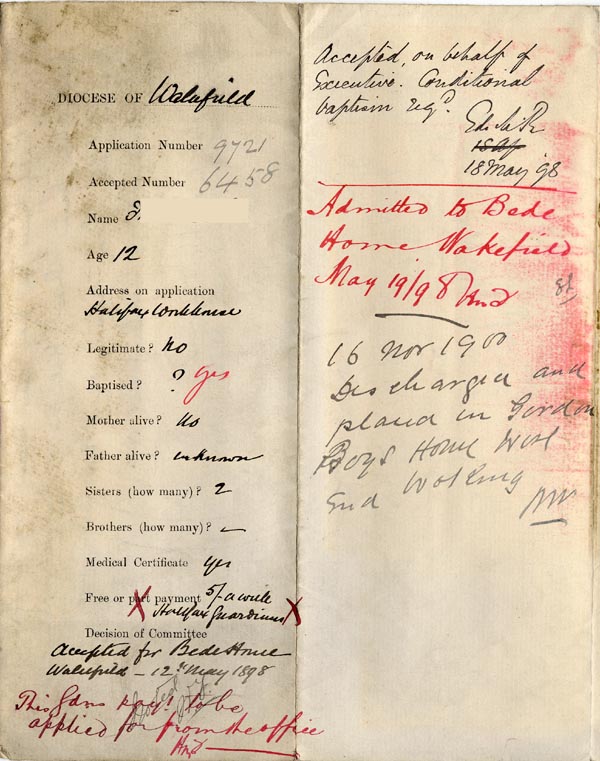 DIOCESE OF Wakefield
Application Number 9721
Accepted Number 6458
Name J.
Age 12
Address on application
Halifax Workhouse
Legitimate? No
Baptised? ? Yes
Mother alive? No
Father alive? unknown
Sisters (how many)? 2
Brothers (how many)? –
Medical Certificate yes
Free or part payment 5/- a week
Halifax Guardians
Decision of Committee
Accepted for Bede Home
Wakefield – 12th May 1898
This Gdns paymt to be
applied for from the office
Accepted, on behalf of
Executive. Conditional
baptism reqd.
18 Ap
18 May '98
Admitted to Bede
Home Wakefield
May 19/98
16 Nov 1900
Discharged and
placed in Gordon
Boys Home West
End Woking